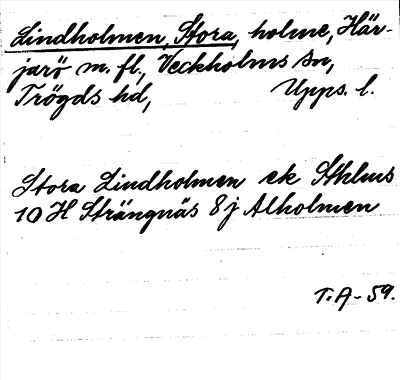 Lindholmen, Stora, holme, Här-
jarö m. fl., Veckholms sn,
Trögds hd, Upps. l.
Stora Lindholmen ek Sthlms
10 H Strängnäs 8 j Alholmen
T. A - 59.